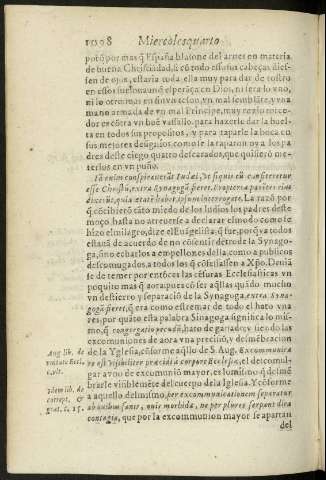 1098 Miercoles quarto
porq̃ por mas q̃ España blasone del arnes en materia
de buena Christiãdad, si cõ todo essotras cabeças dies-
sen de ojos, estaria toda ella muy para dar de rostro
en essos suelos aunq̃ esperãça en Dios, ni sera lo vno,
ni lo otro mas en fin vn seso, vn mal semblãte, y vna
mano armada de vn mal Principe, muy recio torce-
dor es cõtra vn boẽ vassallo, para hazerle dar la buel-
ta en todos sus propositos, y para taparle la boca en
sus mejores designios, como se la taparon oy a los pa-
dres deste ciego quatro descarados, que quisierõ me-
terlos en vn puño.
Iã enim conspirauerãt Iudæi, vt siquis eũ confiteretur
esse Christũ, extra Synagogã fieret. Propterea parẽtes eius
dixerũt, quia ætatẽ habet, ipsum interrogate. La razõ por
que cõcibierõ tãto miedo de los Iudios los padres deste
moço, hasta no atreuerse a declarar el modo como se
hizo el milagro, dize el Euãgelista, q̃ fue, porq̃ ya todos
estauã de acuerdo de no cõsentir dẽtro de la Synago-
ga, sino echarlos a empellones della, como a publicos
descomulgados, a todos los q̃ cõfessassen a Xp̃o. Deuia
se de temer por entõces las cẽsuras Ecclesiasticas vn
poquito mas q̃ aora, pues cõ ser aq̃llas quiça mucho
vn destierro y separaciõ de la Synagoga, extra Syna-
gogã fieret, q̃ era como estremar de todo el hato vna
res, por quãto esta palabra Sinagoga significa lo mis-
mo, q̃ congregatio pecudũ, hato de ganados, y siendo las
excomuniones de aora vna precision, y desmẽbracion
de la Yglesia, cõforme aq̃llo de S. Aug. Excommunicare
est visibiliter præcidi à corpore Ecclesiæ, el descomul-
gar avno de excomunió mayor, es lo mismo, q̃ desmẽ
brarle visiblemẽte del cuerpo de la Iglesia. Y cõforme
a aquello del mismo, per excommunicationem separatur
ab ouibus sanis, ouis morbida, ne per plures serpant dira
contagia, que por la excommunion mayor se apartan
del
Aug. lib. de
vnitate Eccl.
c. vlt.
Idem lib. de
corrept. &
grat. c. 15.